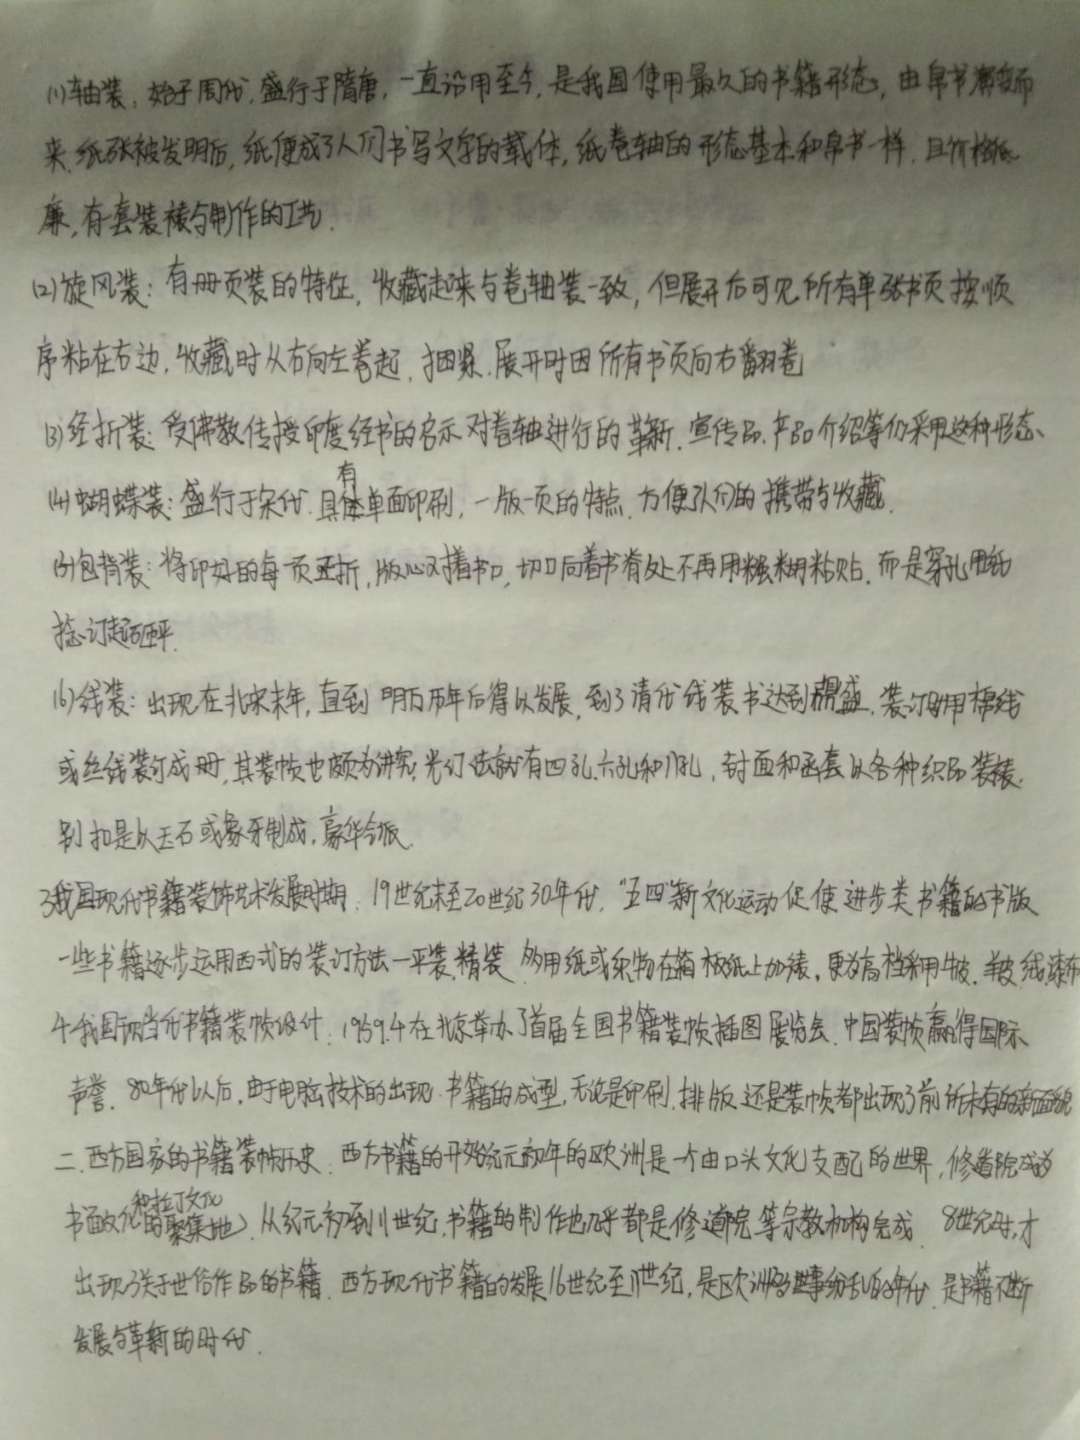 (1)轴装:始于周代,盛行于隋唐,一直沿用至今,是我国使用最久的书籍形态,由帛书演变而
来.纸张被发明后,纸便成了人们书写文字的载体,纸卷轴的形态基本和帛书一样.且价格低
廉,有一套装裱与制作的工艺.
(2)旋风装:有册页装的特征,收藏起来与卷轴装一致,但展开后可见所有单张书页按顺
序粘在右边.收藏时从右向左卷起,捆紧.展开时因所有书页向右翻卷
(3)经折装:受佛教传授印度经书的启示对卷轴进行的革新.宣传品.产品介绍等仍采用这种形态、
(4)蝴蝶装:盛行于宋代.具有单面印刷,一版一页的特点.方便了人们的携带与收藏.
(5)包背装:将印好的每一页正折,版心对着书口,切口向着书脊处不再用糨糊粘贴.而是穿孔用纸
捻订起砸平.
(6)线装:出现在北宋末年,直到明万历年后得以发展,到了清代线装书达到鼎盛.装订时用棉线
或丝线装订成册,其装帧也颇为讲究,光订法就有四孔.六孔和八孔,封面和函套以各种织品装裱.
别扣是以玉石或象牙制成,豪华气派.
3我国现代书籍装饰艺术发展时期.19世纪末至20世纪30年代."五四"新文化运动促使进步类书籍的书版
一些书籍逐步运用西式的装订方法一平装.精装 多用纸或织物在箱板纸上加裱,更为高档采用牛皮.羊皮,绒,漆布
4.我国当代书籍装帧设计:1959.4在北京举办了首届全国书籍装帧插图展览会.中国装帧赢得国际
声誉.80年代以后,由于电脑技术的出现.书籍的成型,无论是印刷.排版.还是装帧都出现了前所未有的新面貌
二.西方国家的书籍装帧历史.西方书籍的开始纪元初年的欧洲是一个由口头文化支配的世界,修道院成为
书面文化和拉丁文化的聚集地,从纪元初到11世纪,书籍的制作也几乎都是修道院等宗教机构完成.8世纪时,才
出现了关于世俗作品的书籍.西方现代书籍的发展16世纪至17世纪,是欧洲多事纷乱的年代.是书籍不断
发展与革新的时代.